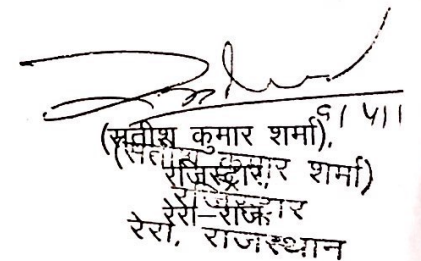 (सतीश कुमार शर्मा),
(सतीश कुमार शर्मा)
रजिस्ट्रार,
रजिस्ट्रार
रेरा-राज.
रेरा, राजस्थान